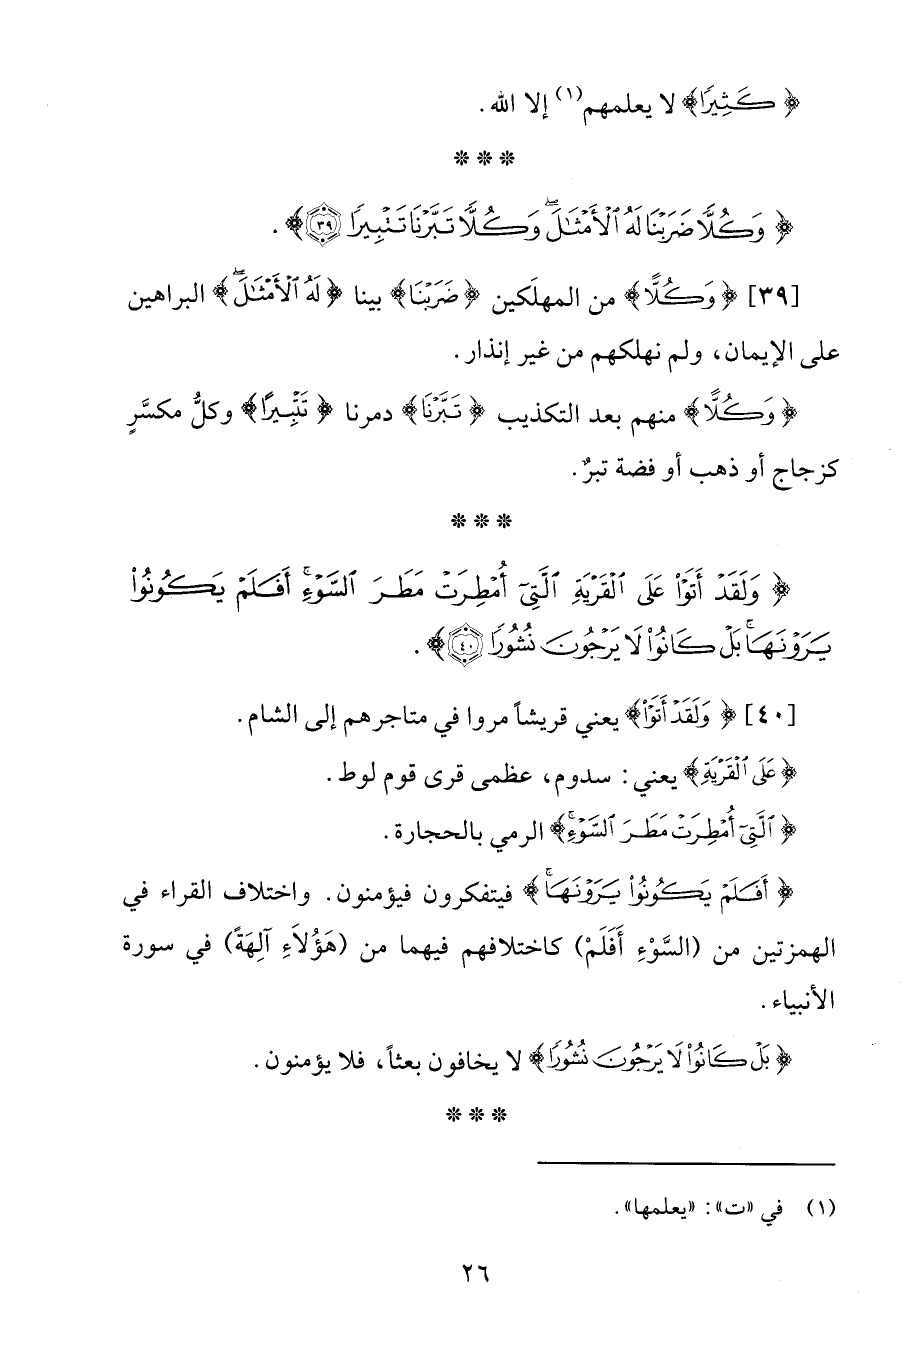 ﴿كَثِيرًا﴾ لا يعلمهم(١) إلا الله.
* * *
﴿وَكُلًّا ضَرَبْنَا لَهُ الْأَمْثَالَ ۖ وَكُلًّا تَبَّرْنَا تَتْبِيرًا ٣٩﴾.
[٣٩] ﴿وَكُلًّا﴾ من المهلَكين ﴿ضَرَبْنَا﴾ بينا ﴿لَهُ الْأَمْثَالَ ۖ﴾ البراهين
على الإيمان، ولم نهلكهم من غير إنذار.
﴿وَكُلًّا﴾ منهم بعد التكذيب ﴿تَبَّرْنَا﴾ دمرنا ﴿تَتْبِيرًا﴾ وكلُّ مكسَّرٍ
كزجاج أو ذهب أو فضة تبرٌ.
* * *
﴿وَلَقَدْ أَتَوْا عَلَى الْقَرْيَةِ الَّتِي أُمْطِرَتْ مَطَرَ السَّوْءِ ۚ أَفَلَمْ يَكُونُوا
يَرَوْنَهَا ۚ بَلْ كَانُوا لَا يَرْجُونَ نُشُورًا ٤٠﴾.
[٤٠] ﴿وَلَقَدْ أَتَوْا﴾ يعني قريشاً مروا في متاجرهم إلى الشام.
﴿عَلَى الْقَرْيَةِ﴾ يعني: سدوم، عظمى قرى قوم لوط.
﴿الَّتِي أُمْطِرَتْ مَطَرَ السَّوْءِ ۚ﴾ الرمي بالحجارة.
﴿أَفَلَمْ يَكُونُوا يَرَوْنَهَا ۚ﴾ فيتفكرون فيؤمنون. واختلاف القراء في
الهمزتين من (السَّوْءِ أَفَلَمْ) كاختلافهم فيهما من (هَؤُلاَءِ آلِهَةً) في سورة
الأنبياء.
﴿بَلْ كَانُوا لَا يَرْجُونَ نُشُورًا﴾ لا يخافون بعثاً، فلا يؤمنون.
* * *
(١) في «ت»: «يعلمها».
٢٦